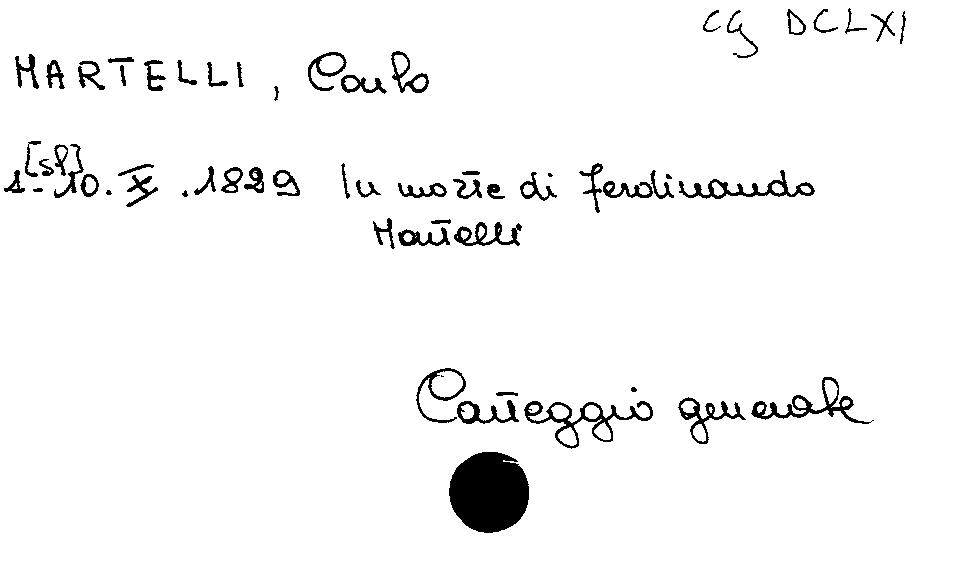 CG DCLXI
MARTELLI, Carlo
[sl]
1-10.X.1829 In morte di Ferdinando
Martelli
Carteggio generale